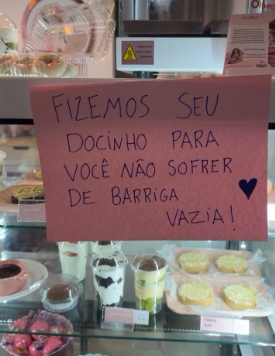 FIZEMOS SEU
DOCINHO PARA
VOCÊ NÃO SOFRER
DE BARRIGA
VAZIA!